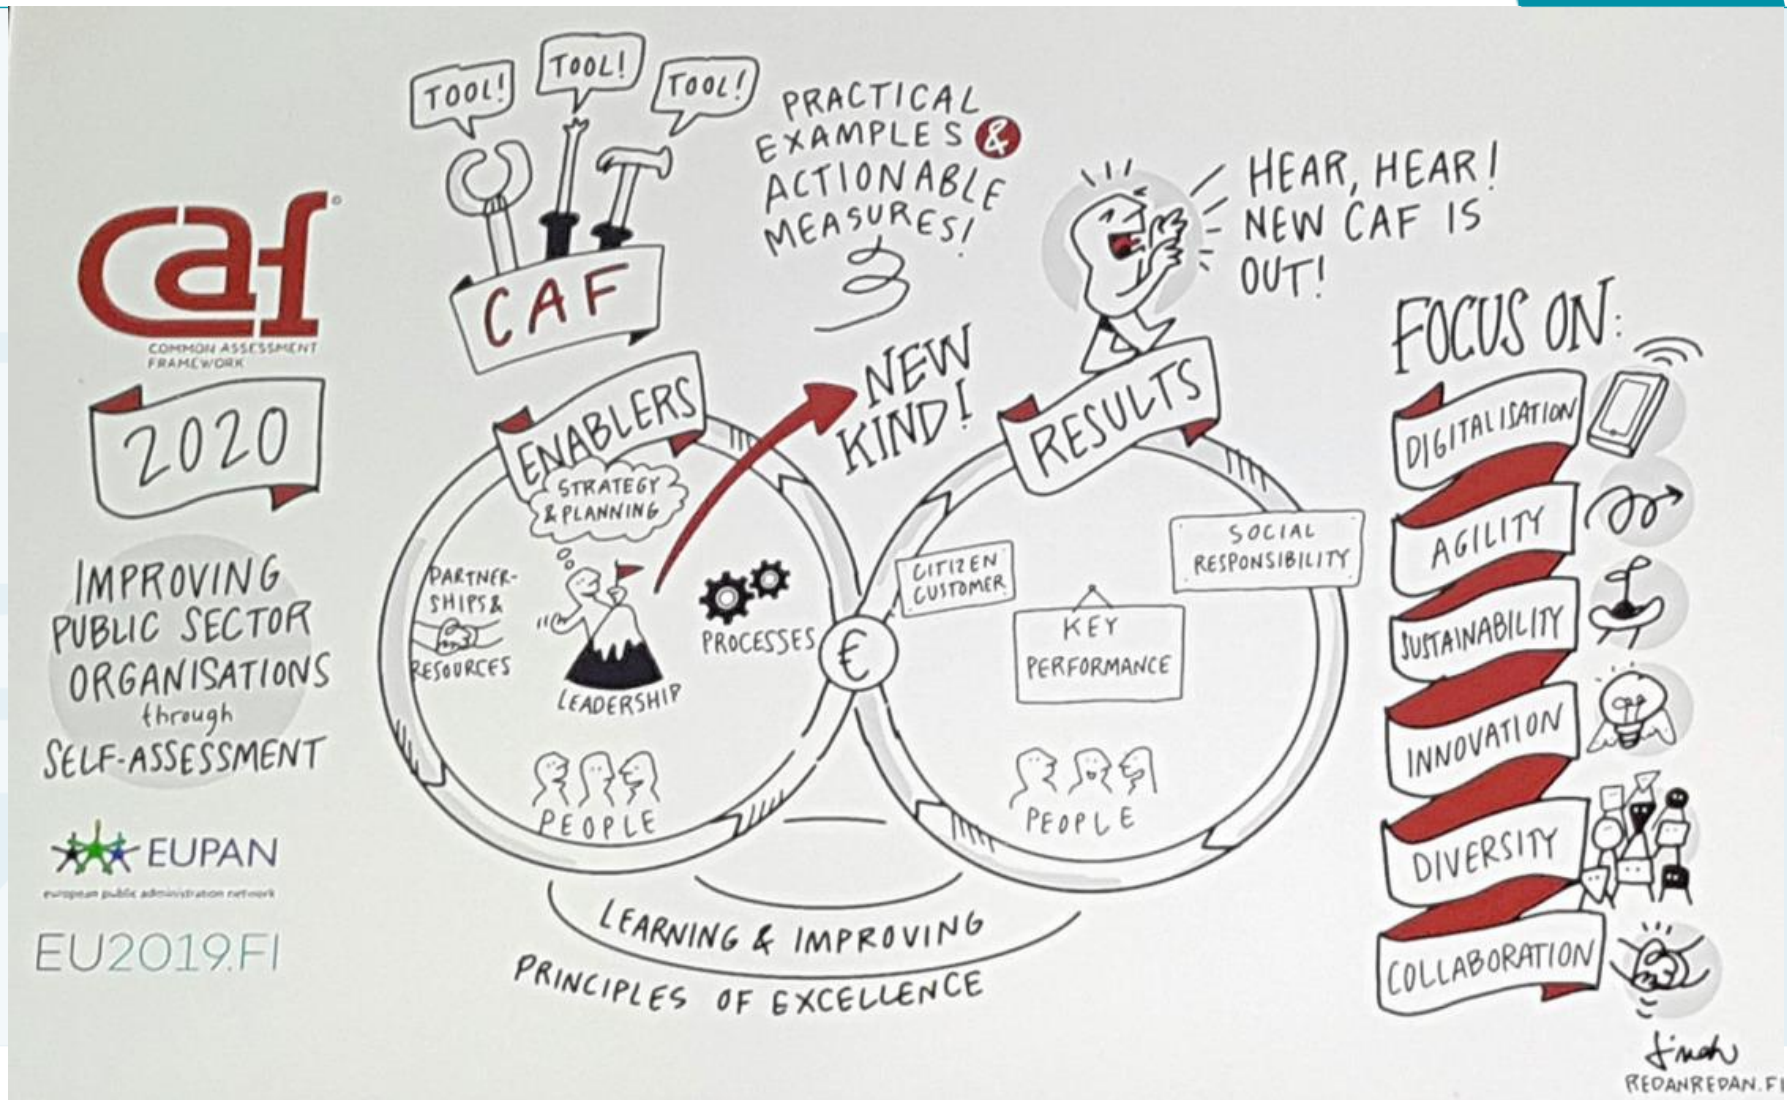 caf
COMMON ASSESSMENT
FRAMEWORK
2020
IMPROVING
PUBLIC SECTOR
ORGANISATIONS
through
SELF-ASSESSMENT
EUPAN
european public administration network
EU2019.FI
TOOL!
TOOL!
TOOL!
CAF
PRACTICAL
EXAMPLES &
ACTIONABLE
MEASURES!
HEAR, HEAR!
NEW CAF IS
OUT!
NEW
KIND!
ENABLERS
STRATEGY
& PLANNING
PARTNER-
SHIPS &
RESOURCES
LEADERSHIP
PROCESSES
PEOPLE
€
RESULTS
CITIZEN
CUSTOMER
SOCIAL
RESPONSIBILITY
KEY
PERFORMANCE
PEOPLE
LEARNING & IMPROVING
PRINCIPLES OF EXCELLENCE
FOCUS ON:
DIGITALISATION
AGILITY
SUSTAINABILITY
INNOVATION
DIVERSITY
COLLABORATION
REDANREDAN.FI